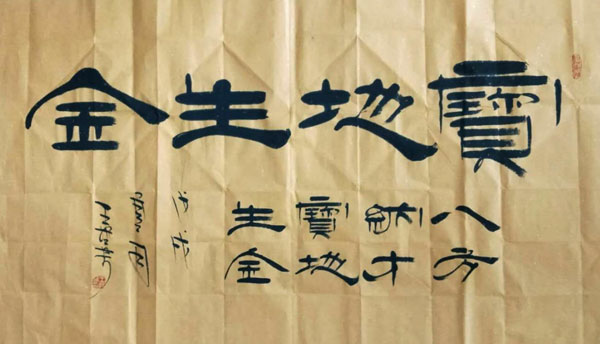 寶地生金
八方
納才
寶地
生金
戊戌